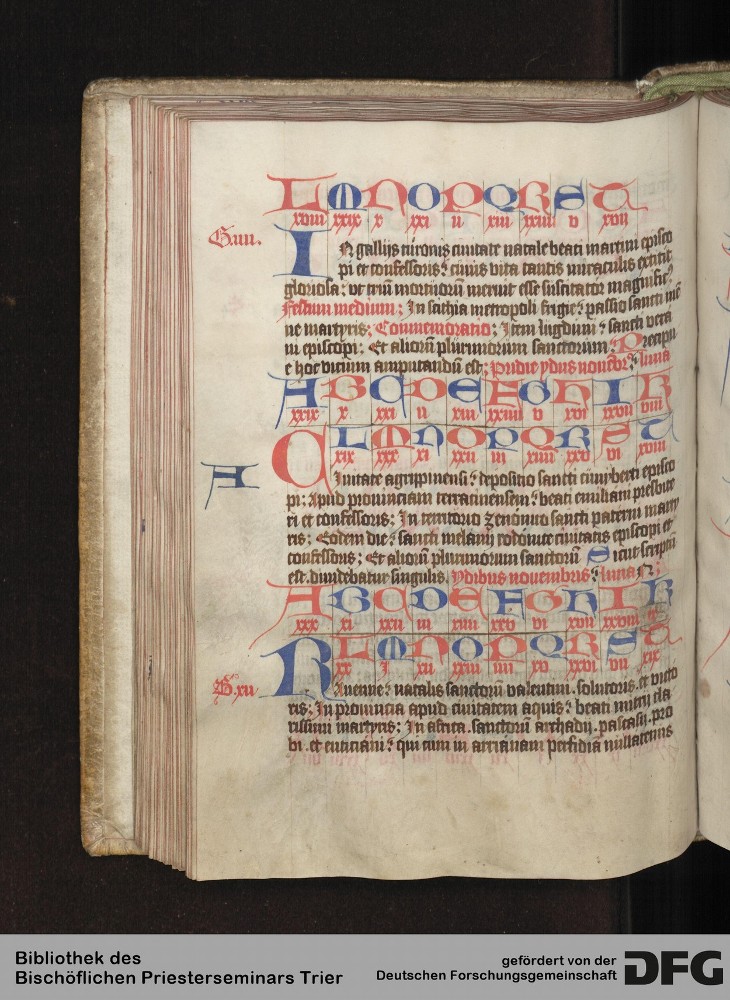 L M N O P Q R S T
xviii xxix x xxi ii xiii xxiiii v xvii
G.iiii.
IN gallijs turonis ciuitate natale beati martini episco
pi et confessoris: cuius vita tantis miraculis extitit
gloriosa: vt triū mortuorū meruit esse suscitator magnific9
Festum medium: In scithia metropoli frigie: passio sancti mē
ne martyris: Commemoratio: Item lugduni: sancti vera
ni episcopi: Et aliorū plurimorum sanctorum: Preapu
e hoc vicium amputandū est: Pridie ydus nouēbr: luna
A B C D E F G H I K
xxix x xxi ii xiii xxiiii v xvi xxvii viii
L M N O P Q R S T
xix xxx xi xxii iii xiiii xxv vi xviii
A
Ciuitate agrippinensi: depositio sancti cuniberti episco
pi: Apud prouinciam terracinensem: beati emiliani presbite
ri et confessoris: In territorio zenonico sancti paterni marty
ris: Eodem die: sancti melanij rodonice ciuitatis episcopi et
confessoris: Et aliorū plurimorum sanctorū Sicut scriptū
est. diuidebatur singulis. Ydibus nouembris: luna
A B C D E F G H I K
xxx xi xxii iii xiiii xxv vi xvii xxviii
L M N O P Q R S T
xx i xii xxiii iiii xv xxvi vii xix
B.xii
Rauenne: natalis sanctorū valentini. solutoris. et victo
ris: In prouincia apud ciuitatem aquis: beati mitrij cla
rissimi martyris: In affrica. sanctorū archadij. pascasij. pro
bi. et euticiani: qui cum in arrianam perfidiā nullatenus
Bibliothek des
Bischöflichen Priesterseminars Trier
gefördert von der
Deutschen Forschungsgemeinschaft
DFG